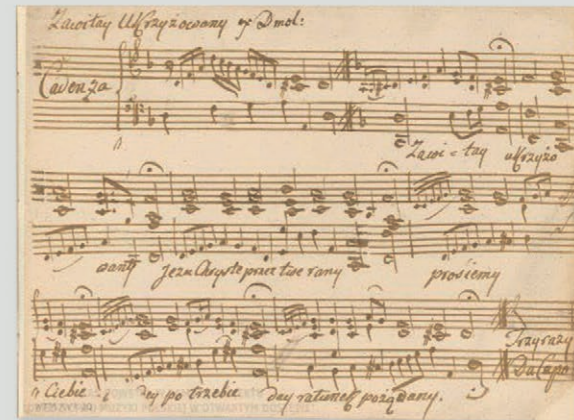 Zawitay Ukrzyżowany ex Dmol:
Cadenza
Zawi - tay ukrzyżo
wany Jezu Chryste przez twe rany prosiemy
Trzy razy
Ciebie day po trzebie day ratunek pożądany. Da Capo